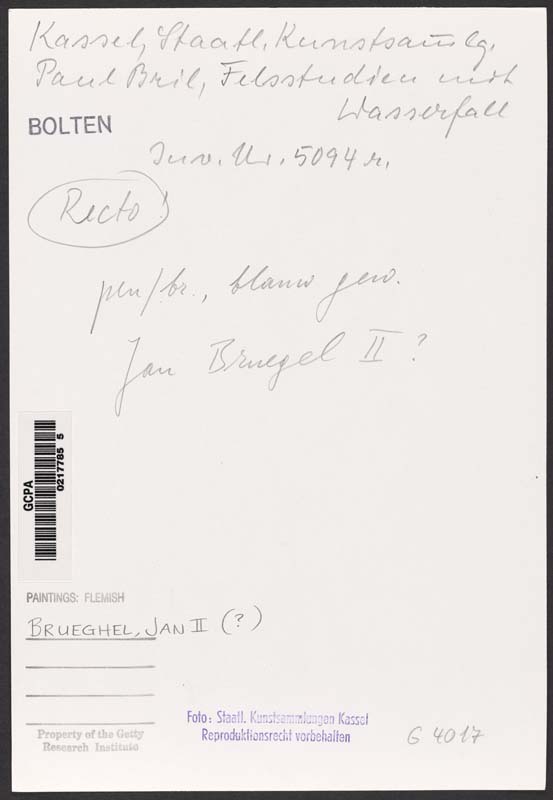 Kassel, Staatl. Kunstsam̄lg.
Paul Bril, Felsstudien mit
Wasserfall
BOLTEN
Inv. Nr. 5094 r.
Recto!
pen/br., blauw gew.
Jan Bruegel II ?
GCPA
0217785 5
PAINTINGS: FLEMISH
BRUEGHEL, JAN II (?)
Property of the Getty
Research Institute
Foto: Staatl. Kunstsammlungen Kassel
Reproduktionsrecht vorbehalten
G 4017